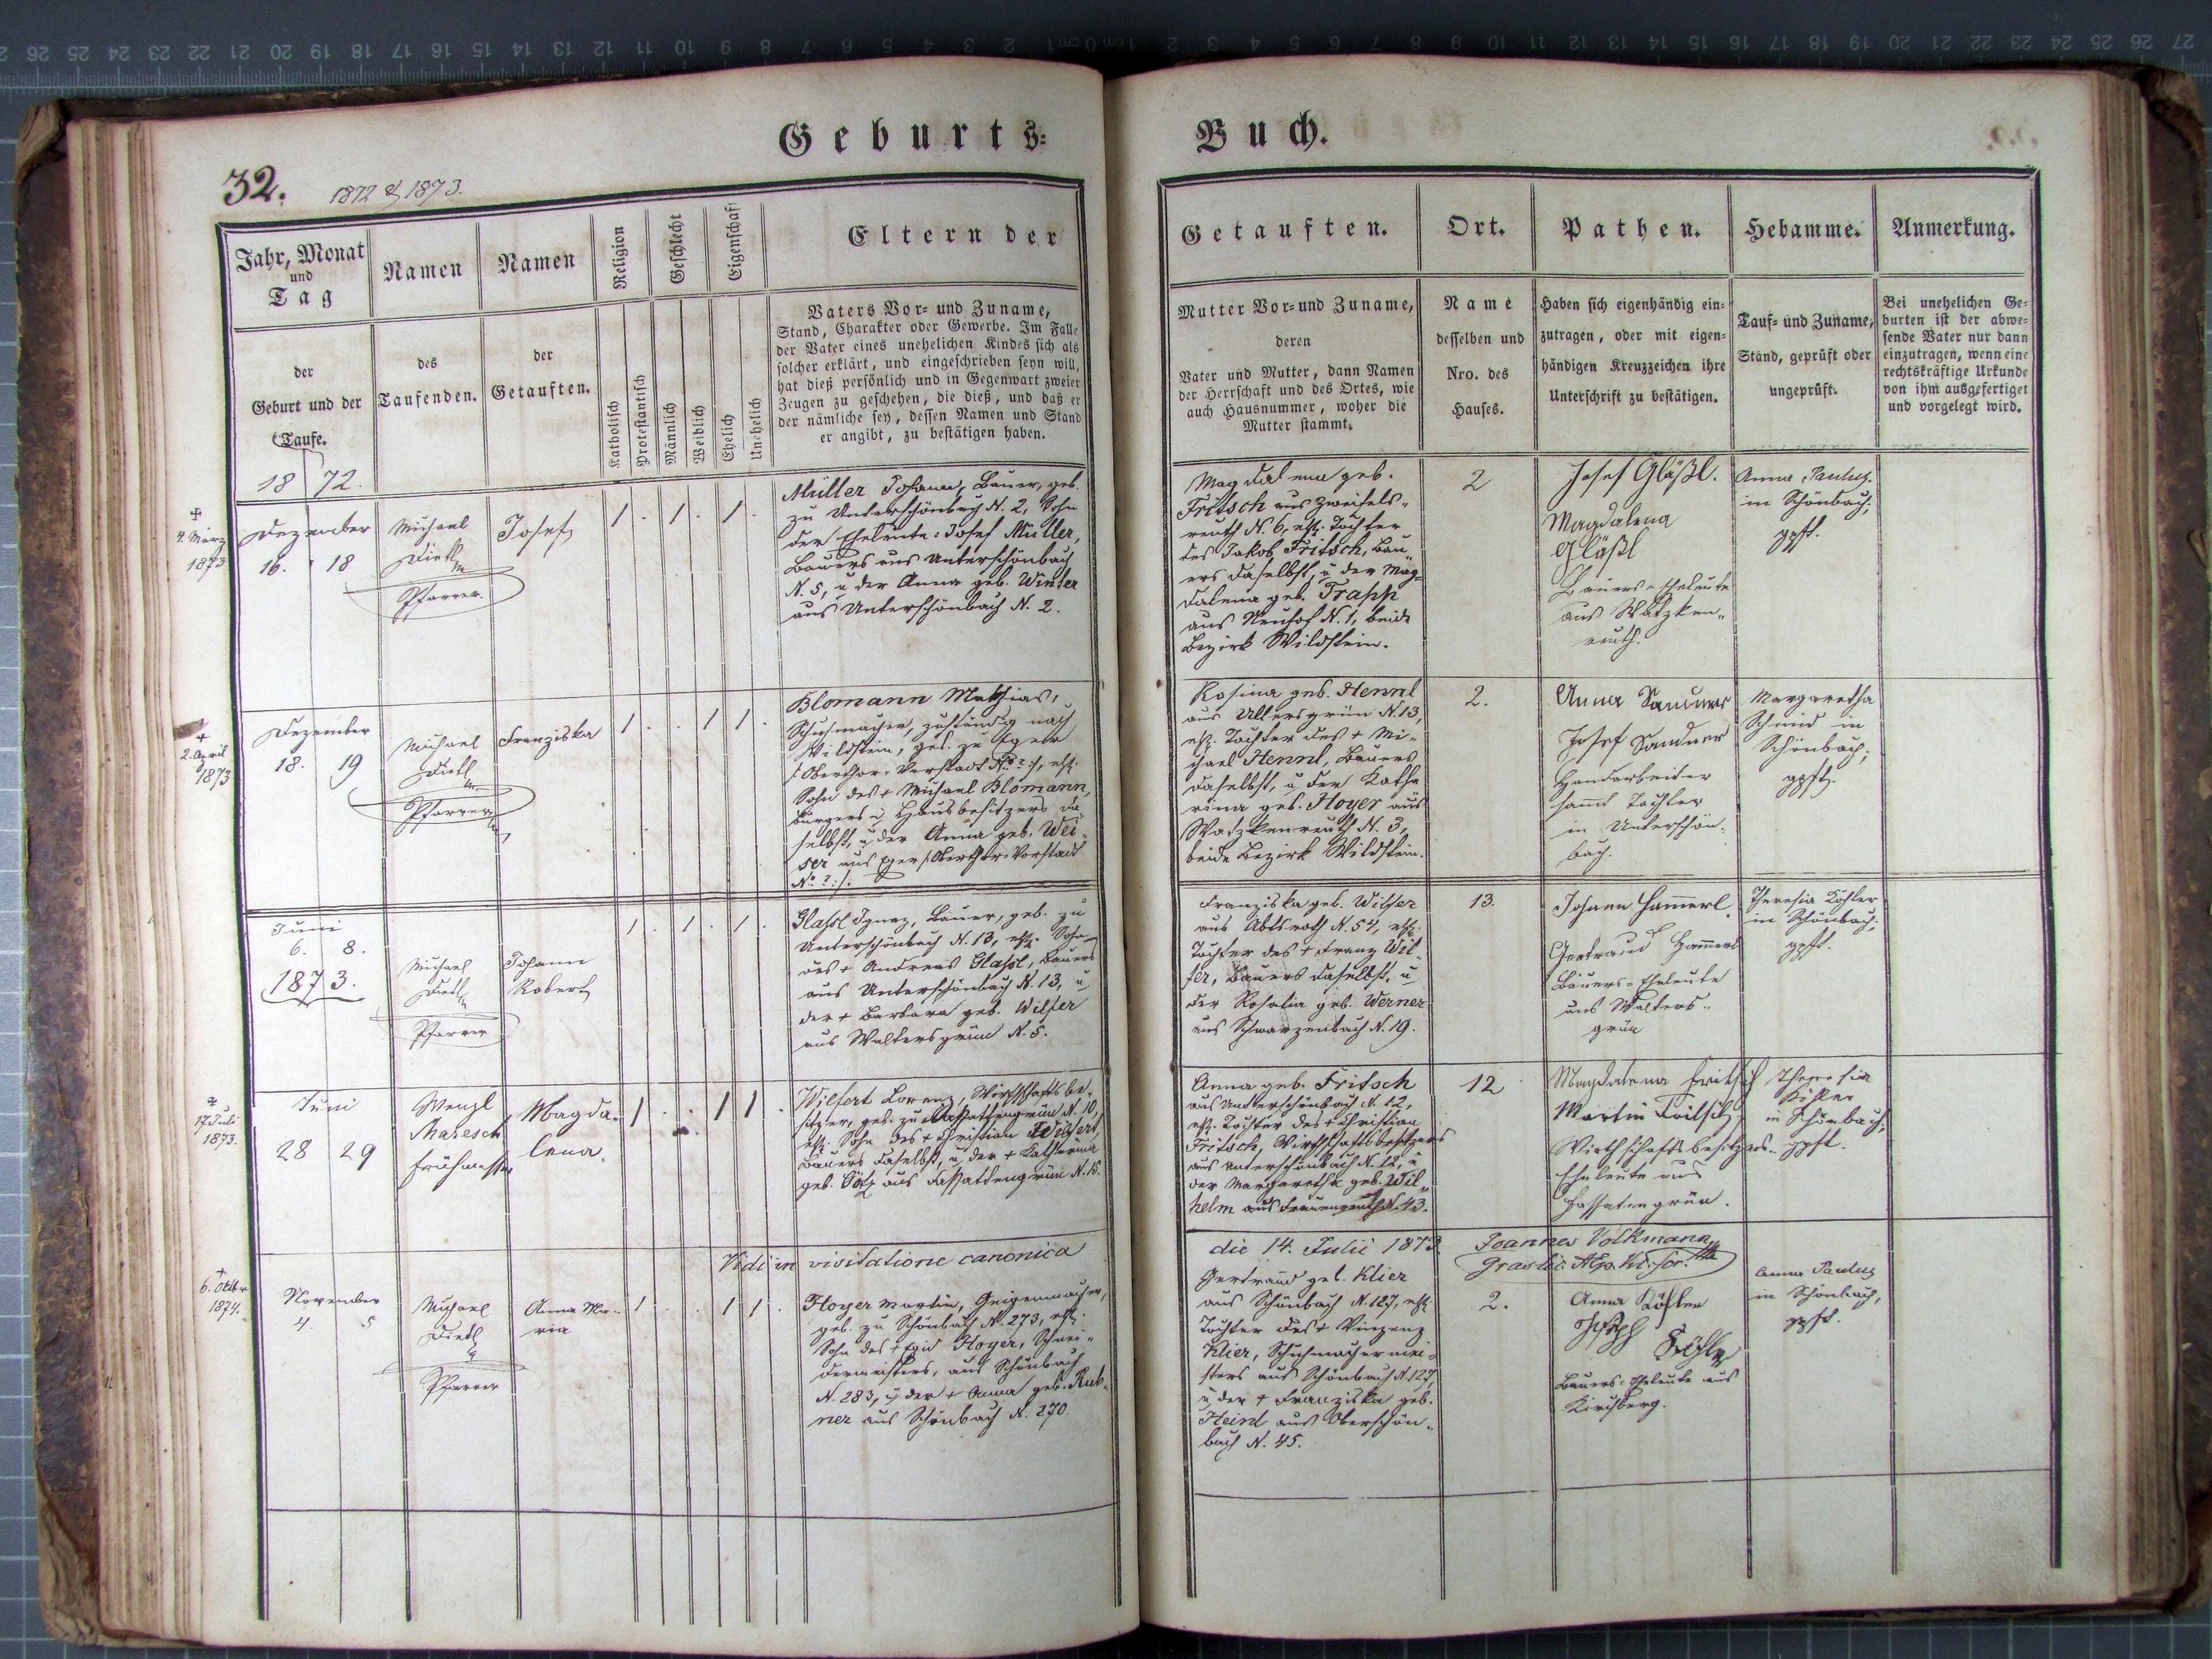 Geburts-
Buch.
32.
1872 & 1873.
Jahr, Monat
und
Tag
der
Geburt und der
Taufe.
Namen
des
Taufenden.
Namen
der
Getauften.
Religion
Katholisch
Protestantisch
Geschlecht
Männlich
Weiblich
Eigenschaft
Ehelich
Unehelich
Eltern der
Vaters Vor- und Zuname,
Stand, Charakter oder Gewerbe. Im Falle
der Vater eines unehelichen Kindes sich als
solcher erklärt, und eingeschrieben seyn will,
hat dieß persönlich und in Gegenwart zweier
Zeugen zu geschehen, die dieß, und daß er
der nämliche sey, dessen Namen und Stand
er angibt, zu bestätigen haben.
Getauften.
Mutter Vor- und Zuname,
deren
Vater und Mutter, dann Namen
der Herrschaft und des Ortes, wie
auch Hausnummer, woher die
Mutter stammt.
Ort.
Name
desselben und
Nro. des
Hauses.
Pathen.
Haben sich eigenhändig ein-
zutragen, oder mit eigen-
händigen Kreuzzeichen ihre
Unterschrift zu bestätigen.
Hebamme.
Tauf- und Zuname,
Stand, geprüft oder
ungeprüft.
Anmerkung.
Bei unehelichen Ge-
burten ist der abwe-
sende Vater nur dann
einzutragen, wenn eine
rechtskräftige Urkunde
von ihm ausgefertiget
und vorgelegt wird.
1872.
+
4. März
1873
Dezember
16. 18
Michael
Dietl
Pfarrer.
Josef
1 . 1 . 1 .
Müller Johann, Bauer, geb.
zu Unterschönbach N. 2, Sohn
der Eheleute: Josef Müller,
Bauers aus Unterschönbach
N. 5, u der Anna geb. Winter
aus Unterschönbach N. 2.
Magdalena geb.
Fritsch aus Zweifels-
reuth N. 6, ehl. Tochter
des Jakob Fritsch, Bau-
ers daselbst, u der Mag-
dalena geb. Trapp
aus Neuhof N. 1, beide
Bezirk Wildstein.
2
Josef Gläßl.
Magdalena
Gläßl
Bauers-Eheleute
aus Watzken-
reuth.
Anna Paulus
in Schönbach;
gpft.
+
2. April
1873
Dezember
18. 19
Michael
Dietl
Pfarrer
Franziska
1 . . 1 1 .
Blomann Mathias,
Schuhmacher, zuständig nach
Wildstein, geb. zu Eger
/: Oberthor-Vorstadt No ? :/, ehl.
Sohn des + Michael Blomann,
Bürgers u Hausbesitzers da-
selbst, u der Anna geb. Wei-
ser aus Eger /: Oberthor-Vorstadt
No ? :/.
Rosina geb. Hennl
aus Ullersgrün N. 13,
ehl. Tochter des + Mi-
chael Hennl, Bauers
daselbst, u der Katha
rina geb. Hoyer aus
Watzkenreuth N. 3,
beide Bezirk Wildstein.
2.
Anna Sandner
Josef Sandner
Handarbeiter
sammt Tochter
in Unterschön-
bach.
Margaretha
Schmid in
Schönbach;
gpft.
Juni
6. 8.
1873.
Michael
Dietl
Pfarrer
Johann
Robert
1 . 1 . 1 .
Glassl Ignaz, Bauer, geb. zu
Unterschönbach N. 13, ehl. Sohn
des + Andreas Glassl, Bauers
aus Unterschönbach N. 13, u
der + Barbara geb. Wilfer
aus Waltersgrün N. 5.
Franziska geb. Wilfer
aus Abtsroth N. 54, ehl.
Tochter des + Franz Wil-
fer, Bauers daselbst, u
der Rosalia geb. Werner
aus Schwarzenbach N. 19.
13.
Johann Hammerl
Gertraud Hammerl
Bauers-Eheleute
aus Walters-
grün
Theresia Köhler
in Schönbach;
gpft.
+
17. Juli
1873.
Juni
28 29
Wenzl
Maresch
Frühmesser
Magda-
lena.
1 . . 1 1 .
Wilfert Lorenz, Wirthschaftsbe-
sitzer, geb. zu Fassattengrün N. 10,
ehl. Sohn des + Christian Wilfert,
Bauers daselbst, u der + Katharina
geb. Götz aus Fassattengrün N. 15.
Anna geb. Fritsch
aus Unterschönbach N. 12,
ehl. Tochter des + Christian
Fritsch, Wirthschaftsbesitzers
aus Unterschönbach N. 12, u
der Margaretha geb. Wil-
helm aus Frauenreuth N. 43.
12
Magdalena Fritsch
Martin Fritsch
Wirthschaftsbesitzers-
Eheleute aus
Fassatengrün.
Theresia
Köhler
in Schönbach;
gpft.
Vidi in visitatione canonica
die 14. Julii 1873
Joannes Volkmann
+
6. Oktbr
1874.
November
4. 5
Michael
Dietl
Pfarrer
Anna Ma-
ria
1 . . 1 1 .
Hoyer Martin, Geigenmacher,
geb. zu Schönbach N. 273, ehl.
Sohn des + Egid Hoyer, Schnei-
dermeisters, aus Schönbach
N. 283, u der + Anna geb. Rub-
ner aus Schönbach N. 270.
Gertraud geb. Klier
aus Schönbach N. 127, ehl.
Tochter des + Vinzenz
Klier, Schuhmachermei-
sters aus Schönbach N. 127,
u der + Franziska geb.
Heinl aus Oberschön-
bach N. 45.
2.
Anna Köhler
Joseph Köhler
Bauers-Eheleute aus
Kirchberg.
Anna Paulus
in Schönbach,
gpft.